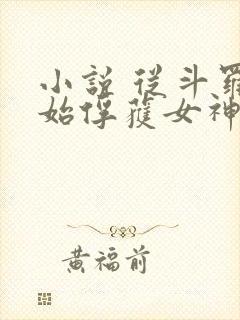 小說 從斗羅
始俘獲女神
黃福前